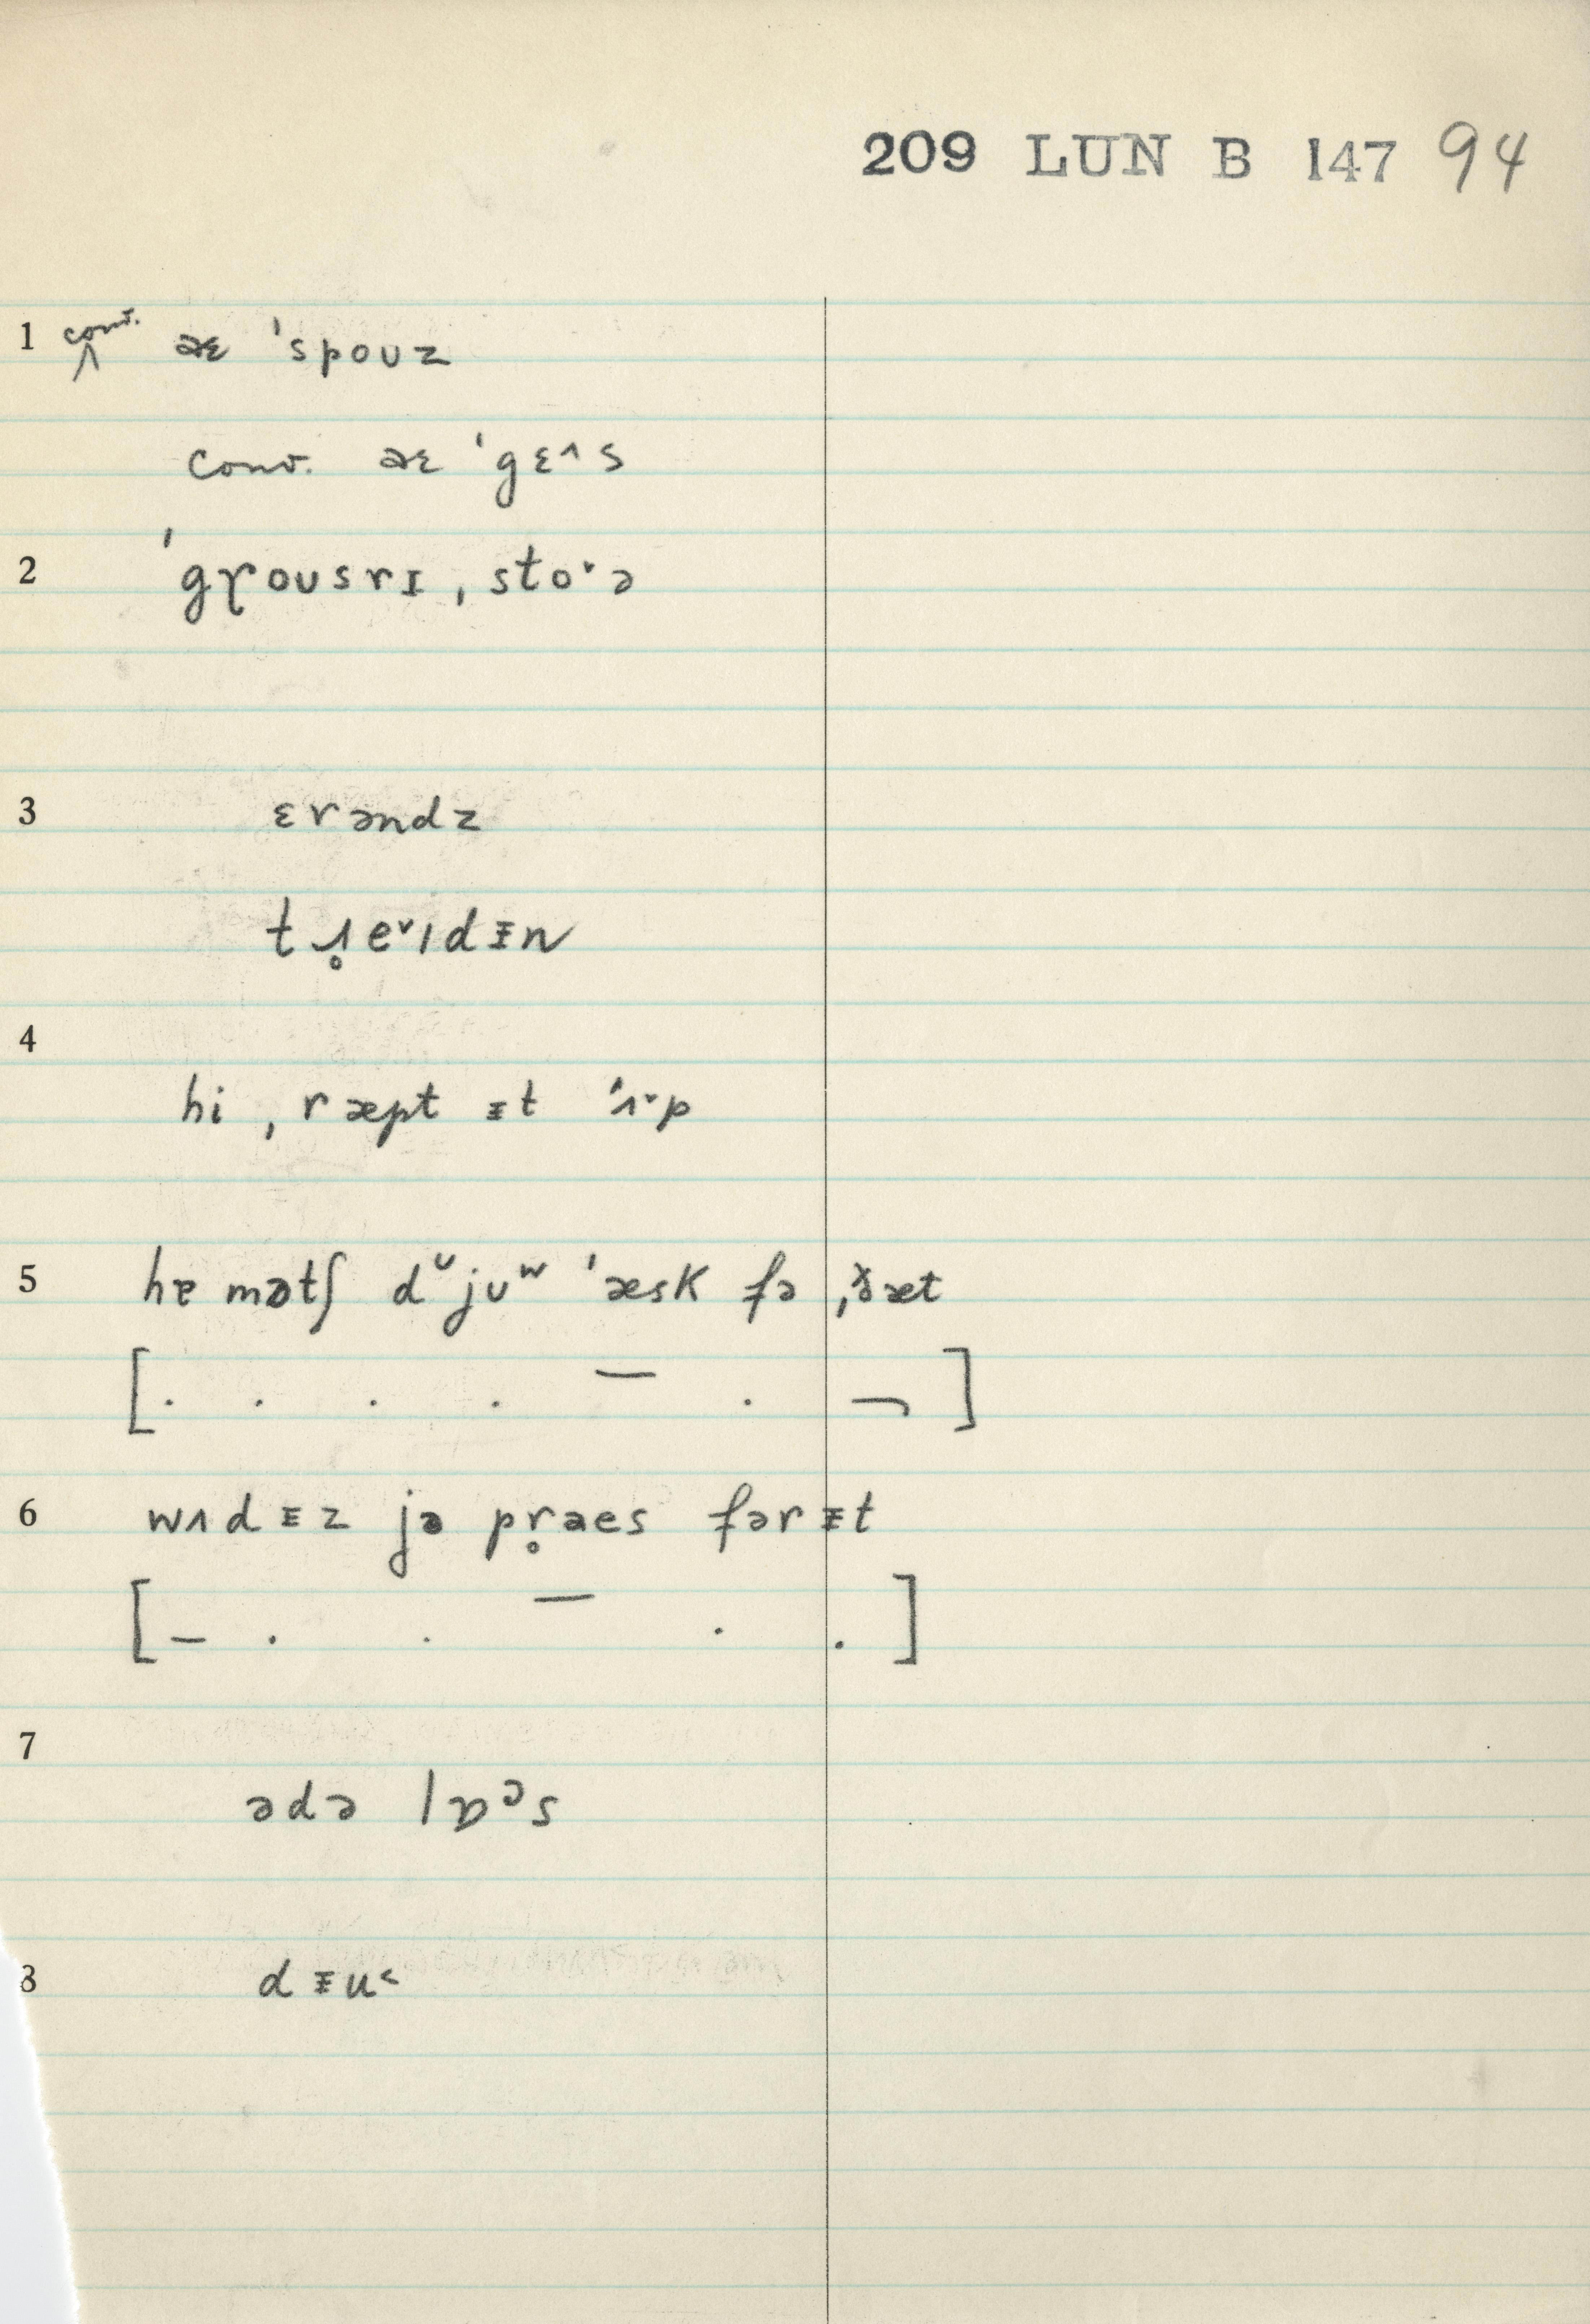 209 LUN B 147 94
1 conv. aɛ ˈspoʊz
conv. aɛ ˈgɛ^s
2 ˈgɼoʊsrɪ ˌstoˑə
3 ɛrəndz
tɹ̥eˇɪdᵻn
4
hi ˌræpt ᵻt ˈʌˑp
5 hɐ mətʃ dᶷjʊʷ ˈæsk fə ˌð̆æt
[. . . . – . ¬]
6 wʌdᵻz jə pr̥aes fərᵻt
[– . . – . .]
7
ədə lɒᵊs
8 dᵻu˂